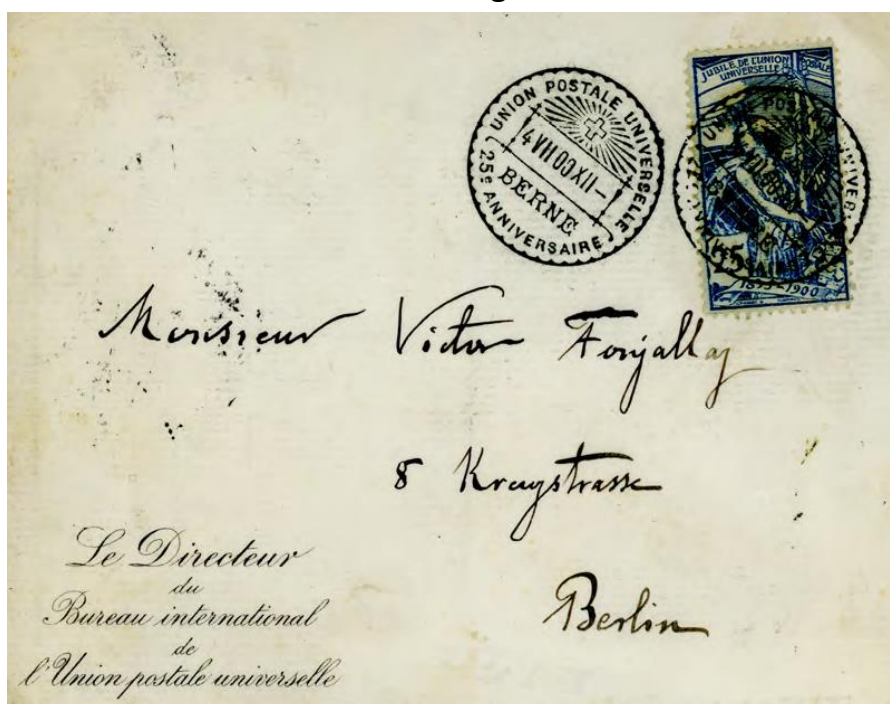 UNION POSTALE UNIVERSELLE
4 VII 00 XII –
BERNE
25e ANNIVERSAIRE
JUBILÉ DE L'UNION
POSTALE
UNIVERSELLE
25
1875–1900
Monsieur Victor Fonjallaz
8 Kraystrasse
Berlin
Le Directeur
du
Bureau international
de
l'Union postale universelle